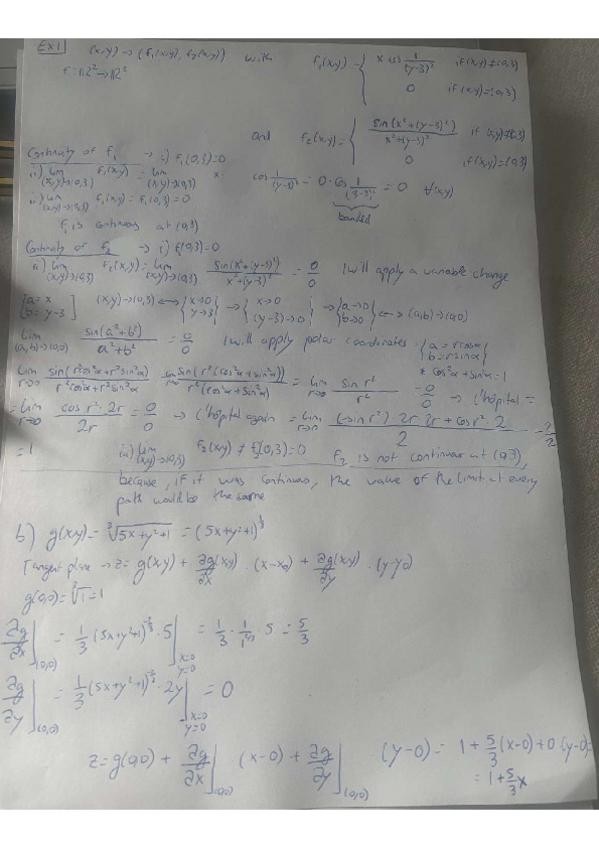 Ex1 (x,y) → (f₁(x,y), f₂(x,y)) with f₁(x,y) = { x cos 1/(y-3)² if (x,y)≠(0,3)
f: ℝ² → ℝ² 0 if (x,y)=(0,3)
and f₂(x,y) = { sin(x²+(y-3)²)/x²+(y-3)² if (x,y)≠(0,3)
0 if (x,y)=(0,3)
Continuity of f₁ → i) f₁(0,3)=0
ii) lim (x,y)→(0,3) f₁(x,y) = lim (x,y)→(0,3) x · cos 1/(y-3)² = 0 · cos 1/(3-3)² = 0 ∀(x,y)
bounded
iii) lim (x,y)→(0,3) f₁(x,y) = f₁(0,3) = 0
f₁ is continuous at (0,3)
Continuity of f₂ → i) f₂(0,3)=0
ii) lim (x,y)→(0,3) f₂(x,y) = lim (x,y)→(0,3) sin(x²+(y-3)²)/x²+(y-3)² = 0/0 I will apply a variable change
[a = x b = y-3] (x,y)→(0,3) ⟷ {x→0 y→3} → {x→0 (y-3)→0} → {a→0 b→0 ⟷ (a,b)→(0,0)
lim (a,b)→(0,0) sin(a²+b²)/a²+b² = 0/0 I will apply polar coordinates: {a = r cosα b = r sinα}
* cos²α + sin²α = 1
lim r→0 sin(r²cos²α + r²sin²α)/r²cos²α + r²sin²α = lim r→0 sin(r²(cos²α + sin²α))/r²(cos²α + sin²α) = lim r→0 sin r²/r² = 0/0 → L'hôpital =
= lim r→0 cos r² · 2r/2r = 0/0 → L'hôpital again = lim r→0 (-sin r²) 2r · 2r + cos r² · 2/2 = 2/2
= 1 iii) lim (x,y)→(0,3) f₂(x,y) ≠ f₂(0,3) = 0 f₂ is not continuous at (0,3),
because, if it was continuous, the value of the limit at every
path would be the same
b) g(x,y) = ∛5x+y²+1 = (5x+y²+1)^1/3
Tangent plane → z = g(x,y) + ∂g(x,y)/∂x · (x-x₀) + ∂g(x,y)/∂y · (y-y₀)
g(0,0) = ∛1 = 1
∂g/∂x |(0,0) = 1/3 (5x+y²+1)^-2/3 · 5 | x=0 y=0 = 1/3 · 1/1^2/3 · 5 = 5/3
∂g/∂y |(0,0) = 1/3 (5x+y²+1)^-2/3 · 2y | x=0 y=0 = 0
z = g(0,0) + ∂g/∂x |(0,0) (x-0) + ∂g/∂y |(0,0) (y-0) = 1 + 5/3 (x-0) + 0 · (y-0) =
= 1 + 5/3 x